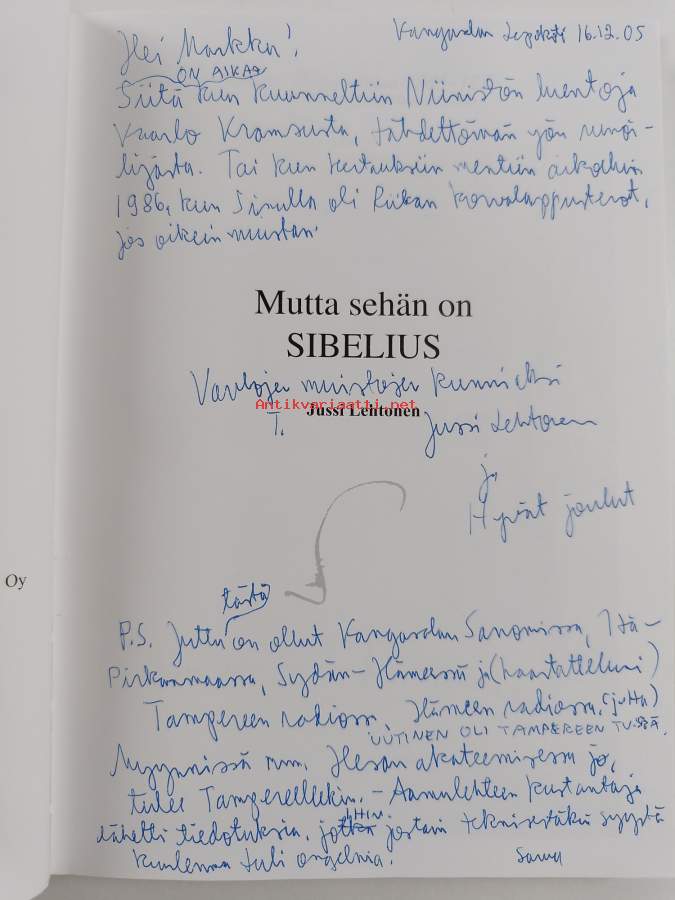 Hei Markku! Kangasalan 16.12.05
ON AIKAA
Siitä kun kuunneltiin Niinistön luentoja
Kaarlo Kramsusta, tähdettömän yön runoi-
lijasta. Tai kun mentiin aikoihin
1986, kun Sinulla oli Riikan korvalappustereot,
jos oikein muistan.
Mutta sehän on
SIBELIUS
Vanhojen muistojen kunniaksi
Antikvariaatti.net
Jussi Lehtonen
T. Jussi Lehtonen
ja
Hyvät joulut
Oy
tästä
P.S. Juttu on ollut Kangasalan Sanomissa, Itä-
Pirkanmaassa, Sydän-Hämeessä ja (haastatteluni)
Tampereen radiossa, Hämeen radiossa. (juttu)
UUTINEN OLI TAMPEREEN TV:SSÄ.
Myynnissä mm. Hesan akateemisessa jo,
tulee Tampereellekin. - Aamulehteen kustantaja
lähetti tiedotuksia, joihin jostain teknisestäkin syystä
kuulemma tuli ongelmia. sama